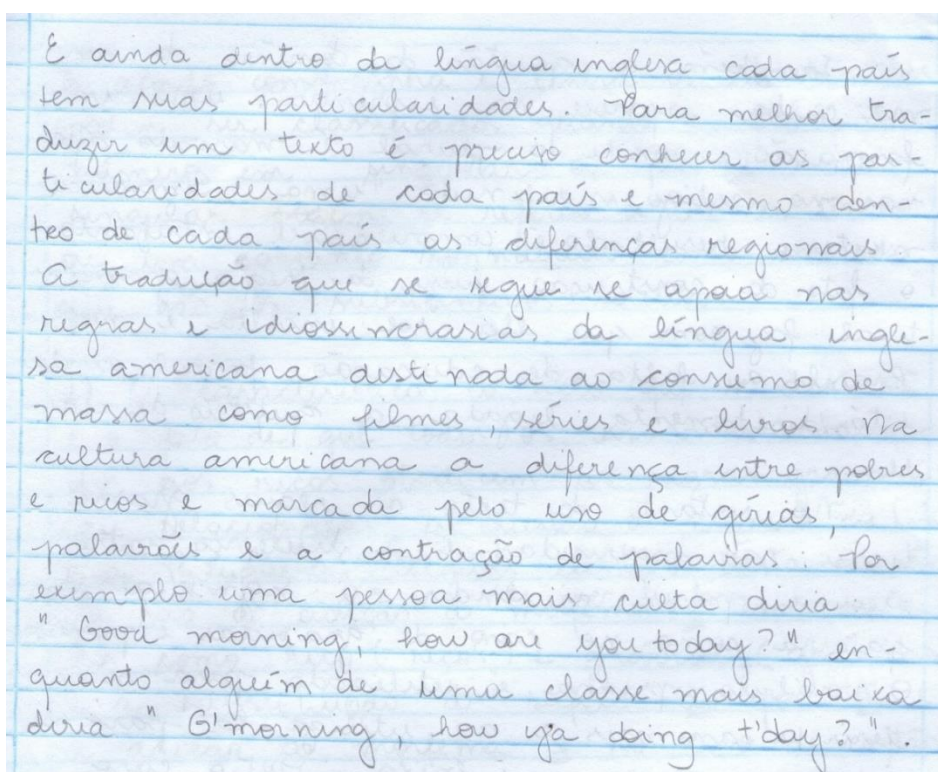 E ainda dentro da língua inglesa cada país
tem suas particularidades. Para melhor tra-
duzir um texto é preciso conhecer as par-
ticularidades de cada país e mesmo den-
tro de cada país as diferenças regionais.
A tradução que se segue se apoia nas
regras e idiossincrasias da língua ingle-
sa americana destinada ao consumo de
massa como filmes, séries e livros. Na
cultura americana a diferença entre pobres
e ricos e marcada pelo uso de gírias,
palavrões e a contração de palavras. Por
exemplo uma pessoa mais culta diria:
" Good morning, how are you today?" en-
quanto alguém de uma classe mais baixa
diria " G'morning, how y'a doing t'day?".